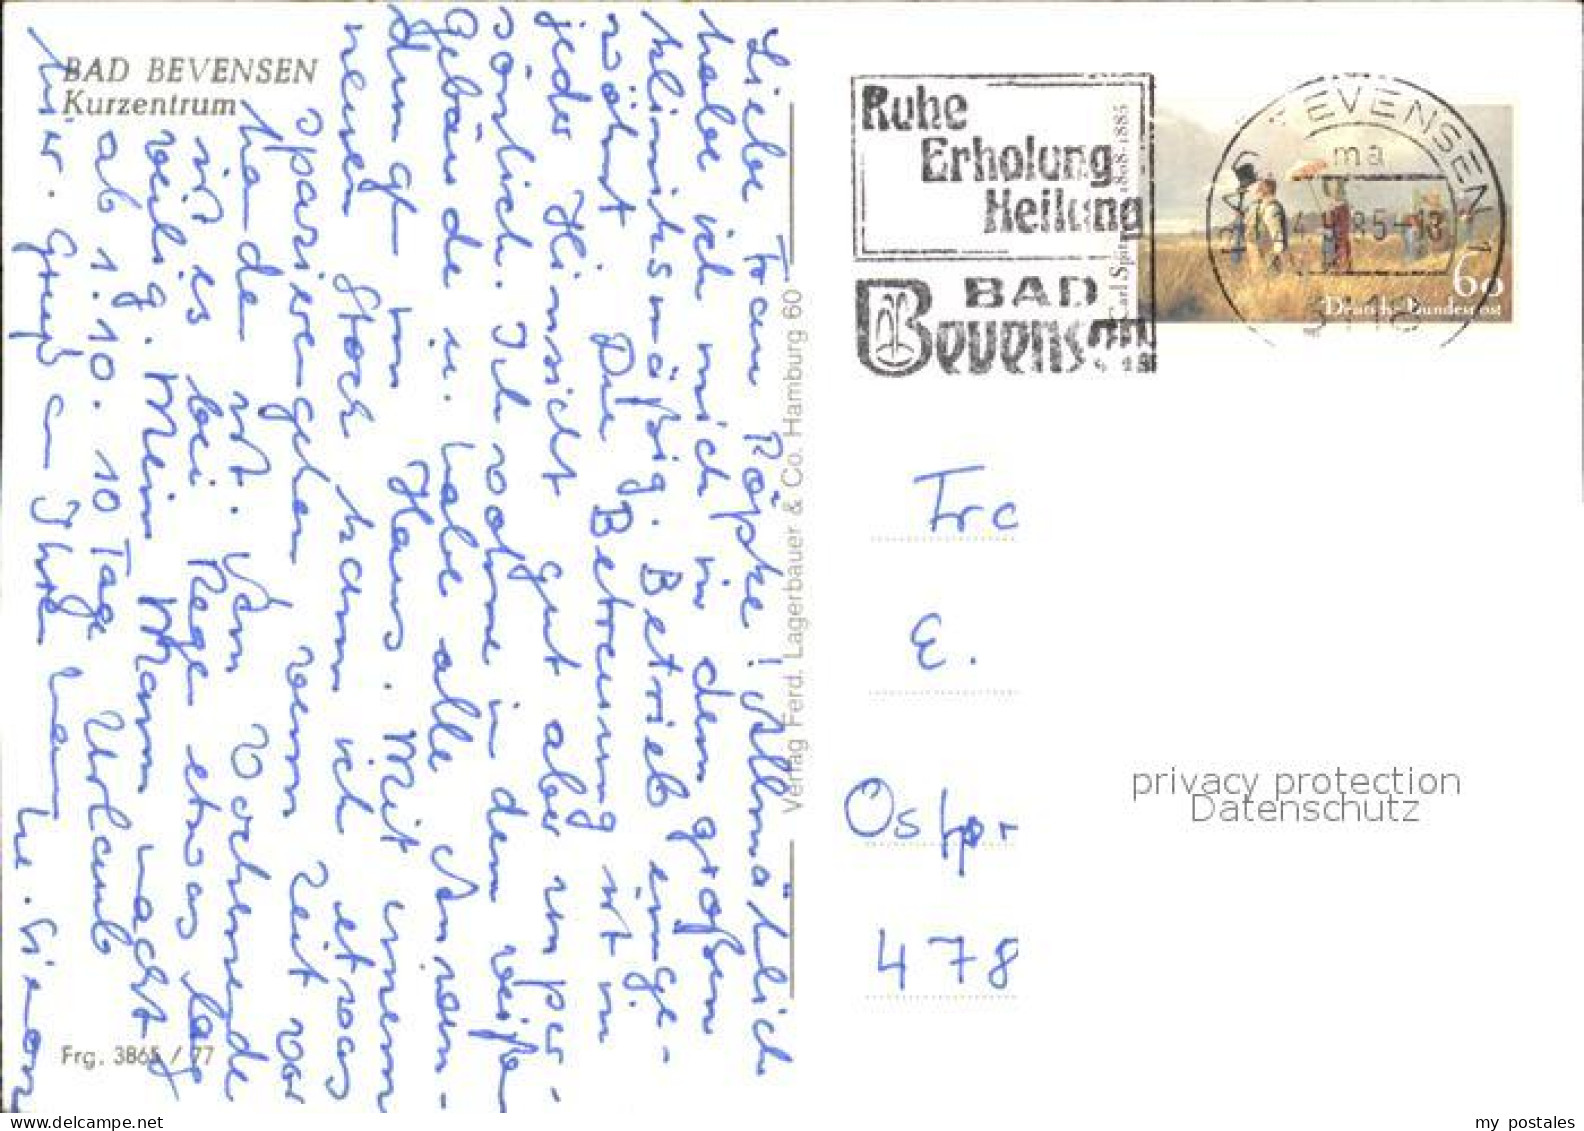 BAD BEVENSEN
Kurzentrum
Liebe Frau Röpke! Allmählich
habe ich mich in dem großen
klinikmäßig. Betrieb einge-
wöhnt. Die Betreuung ist in
jeder Hinsicht gut aber unper-
sönlich. Ich wohne in dem weißen
Gebäude u. habe alle Anwen-
dungn im Haus. Mit unserem
neuen Stock kann ich etwas
spazierengehen wenn Zeit vor
handen ist. Vom Wochenende
ist es bei Rege etwas lag
weilig. Mein Mann macht
ab 1.10. 10 Tage Urlaub
hier. Gruß an Ihren Mann
Ihre
Frg. 3865 / 77
Verlag Ferd. Lagerbauer & Co. Hamburg 60
Ruhe
Erholung
Heilung
BAD
Bevensen
Carl Spitz 1808-1885
BAD BEVENSEN 1
ma
4.9.85-18
3118
60
Deutsche Bundespost
Fra
E.
Oster
478
privacy protection
Datenschutz
my postales